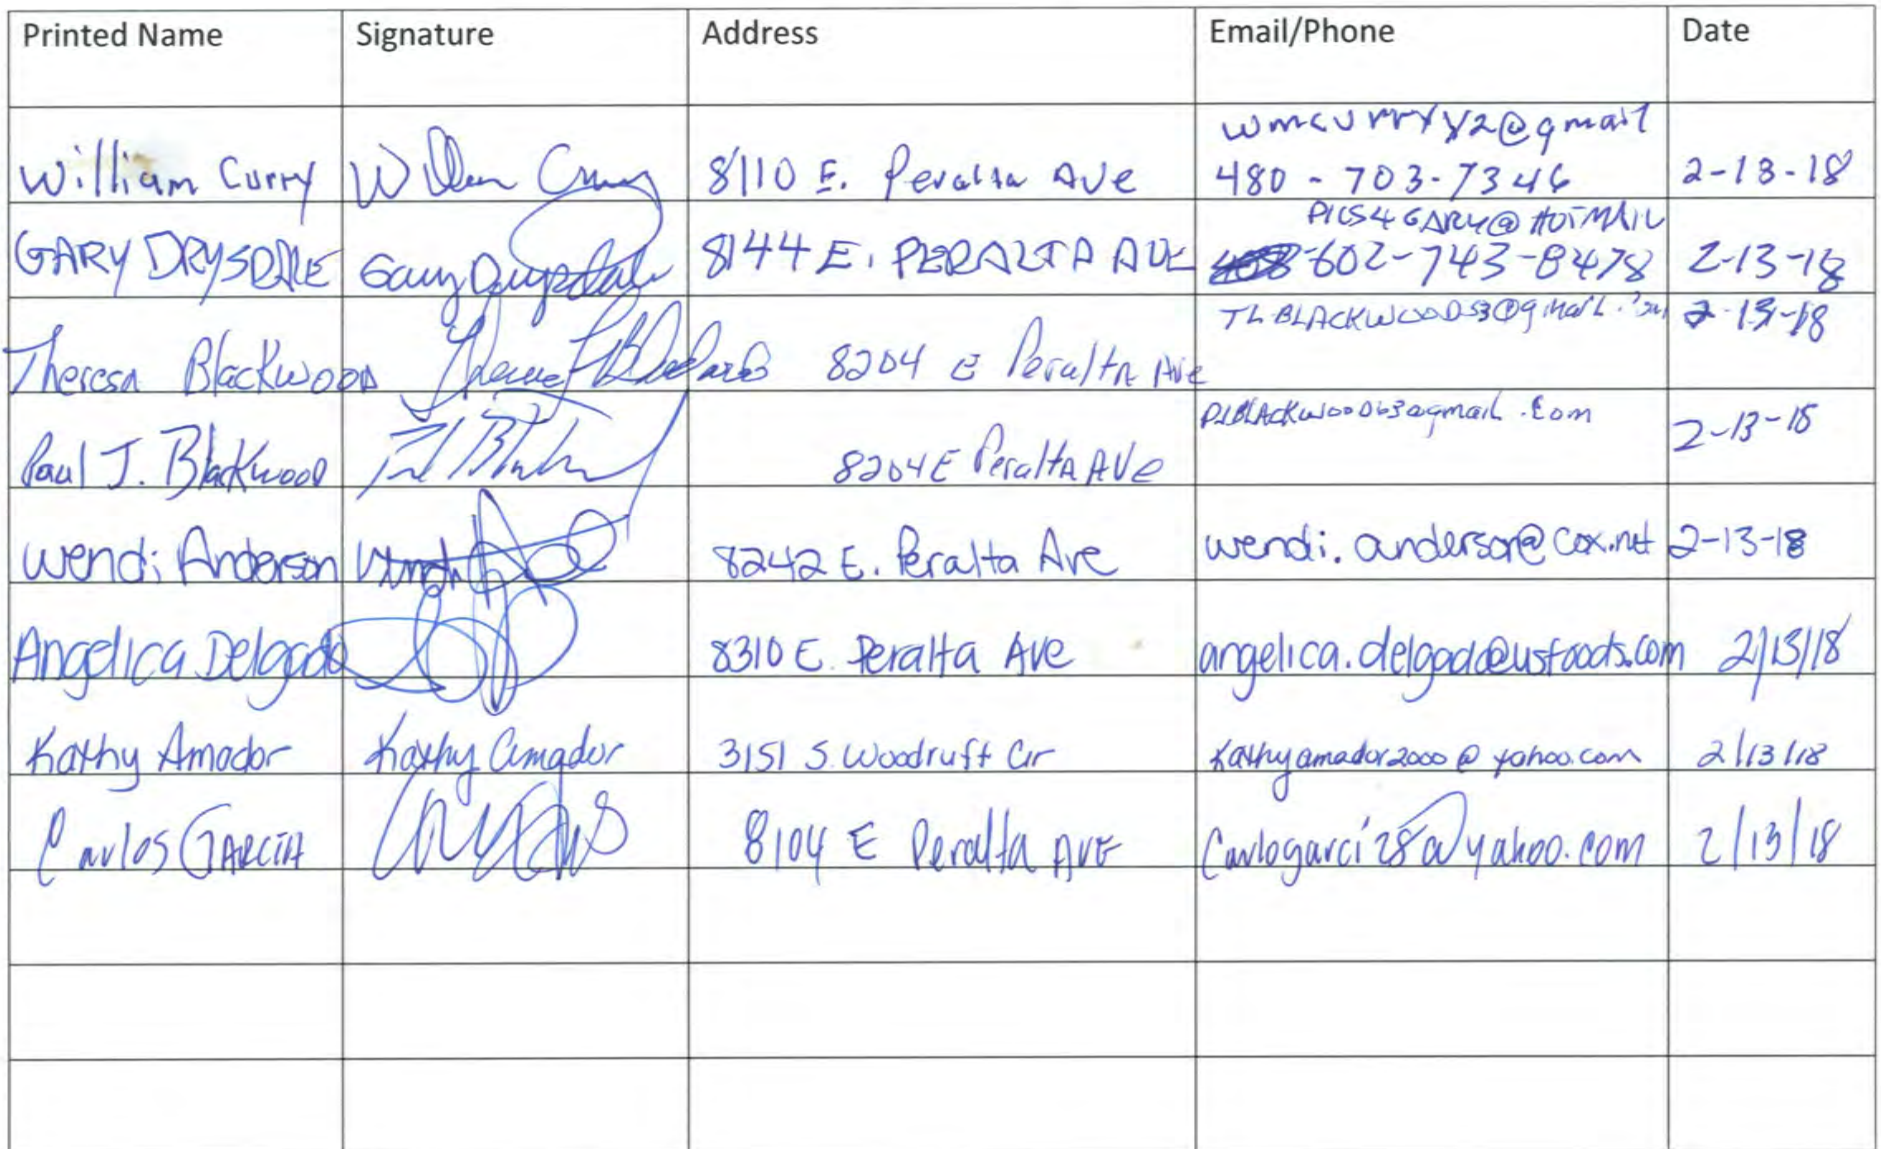 Printed Name Signature Address Email/Phone Date
wmcurry
William Curry William Curry 8110 E. Peralta Ave 480-703-7346 2-13-18
PICS4GARY@HOTMAIL
GARY DRYSDALE Gary Drysdale 8144 E. PERALTA AVE 602-743-8478 2-13-18
TLBLACKWOOD53@gmail.com 2-13-18
Theresa Blackwood 8204 E Peralta Ave
PLBLACKWOOD63@gmail.com
Paul J. Blackwood 8204 E Peralta AVE 2-13-18
Wendi Anderson 8242 E. Peralta Ave wendi.anderson@cox.net 2-13-18
Angelica Delgado 8310 E. Peralta Ave angelica.delgado@usfoods.com 2/13/18
Kathy Amador Kathy Amador 3151 S. Woodruff Cir Kathyamador2000@yahoo.com 2/13/18
Carlos GARCIA 8104 E Peralta AVE Carlogarci28@yahoo.com 2/13/18